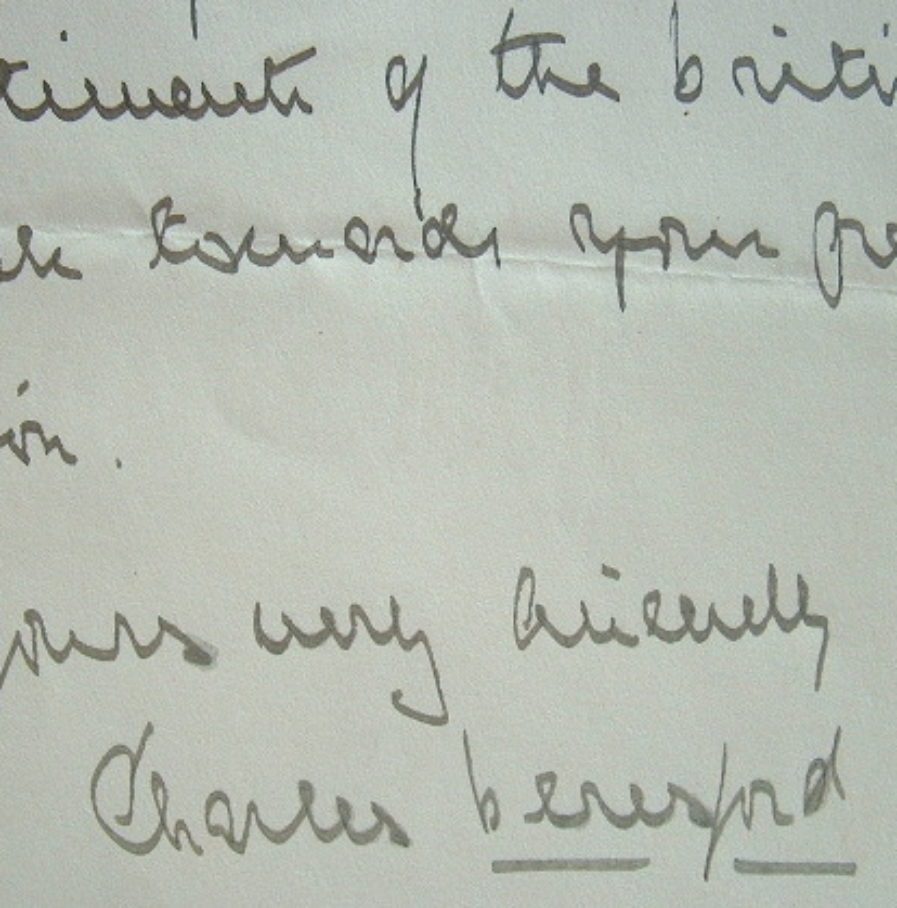 timents of the briti
towards your gre
ion.
yours very sincerelly
Charles beresford